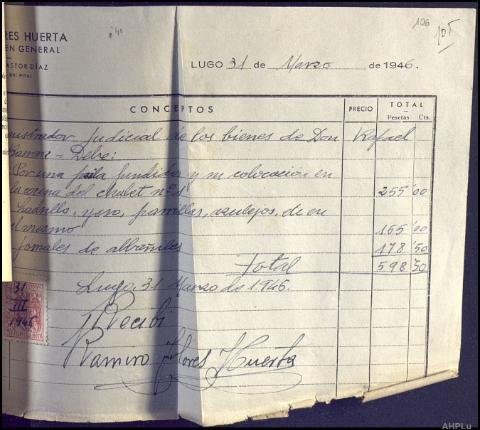 106
105
RES HUERTA
EN GENERAL
ASTOR DÍAZ
LUGO 31 de Marzo de 1946.
CONCEPTOS PRECIO TOTAL
Pesetas Cts.
judicial de los bienes de Don Rafael
Debe:
Por una pila fundida y su colocación en
la cocina del chalet nº 1 255'00
Ladrillo, yeso, parrillas, azulejos, de en
el mismo 165'00
Jornales de albañiles 178'50
Total 598'50
Lugo, 31 Marzo de 1946.
Recibí
Ramiro Flores Huerta
31
III
1946
AHPLu